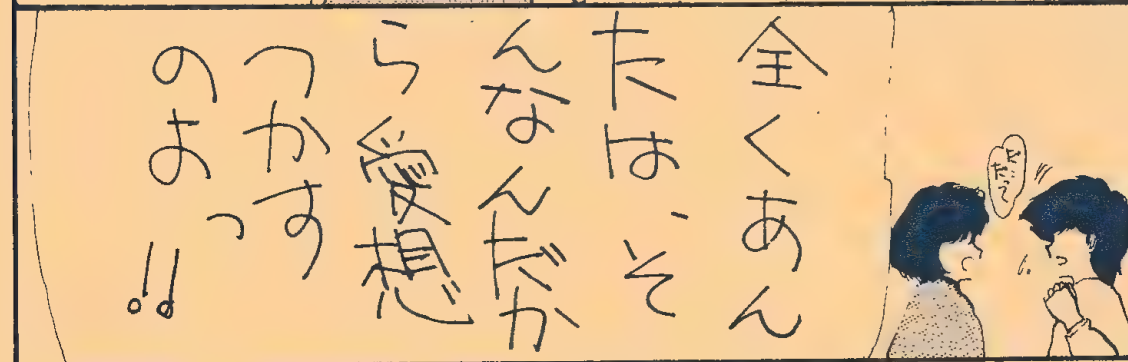 全くあん
たは、そ
んなんだか
ら愛想
つかす
のよっ!!